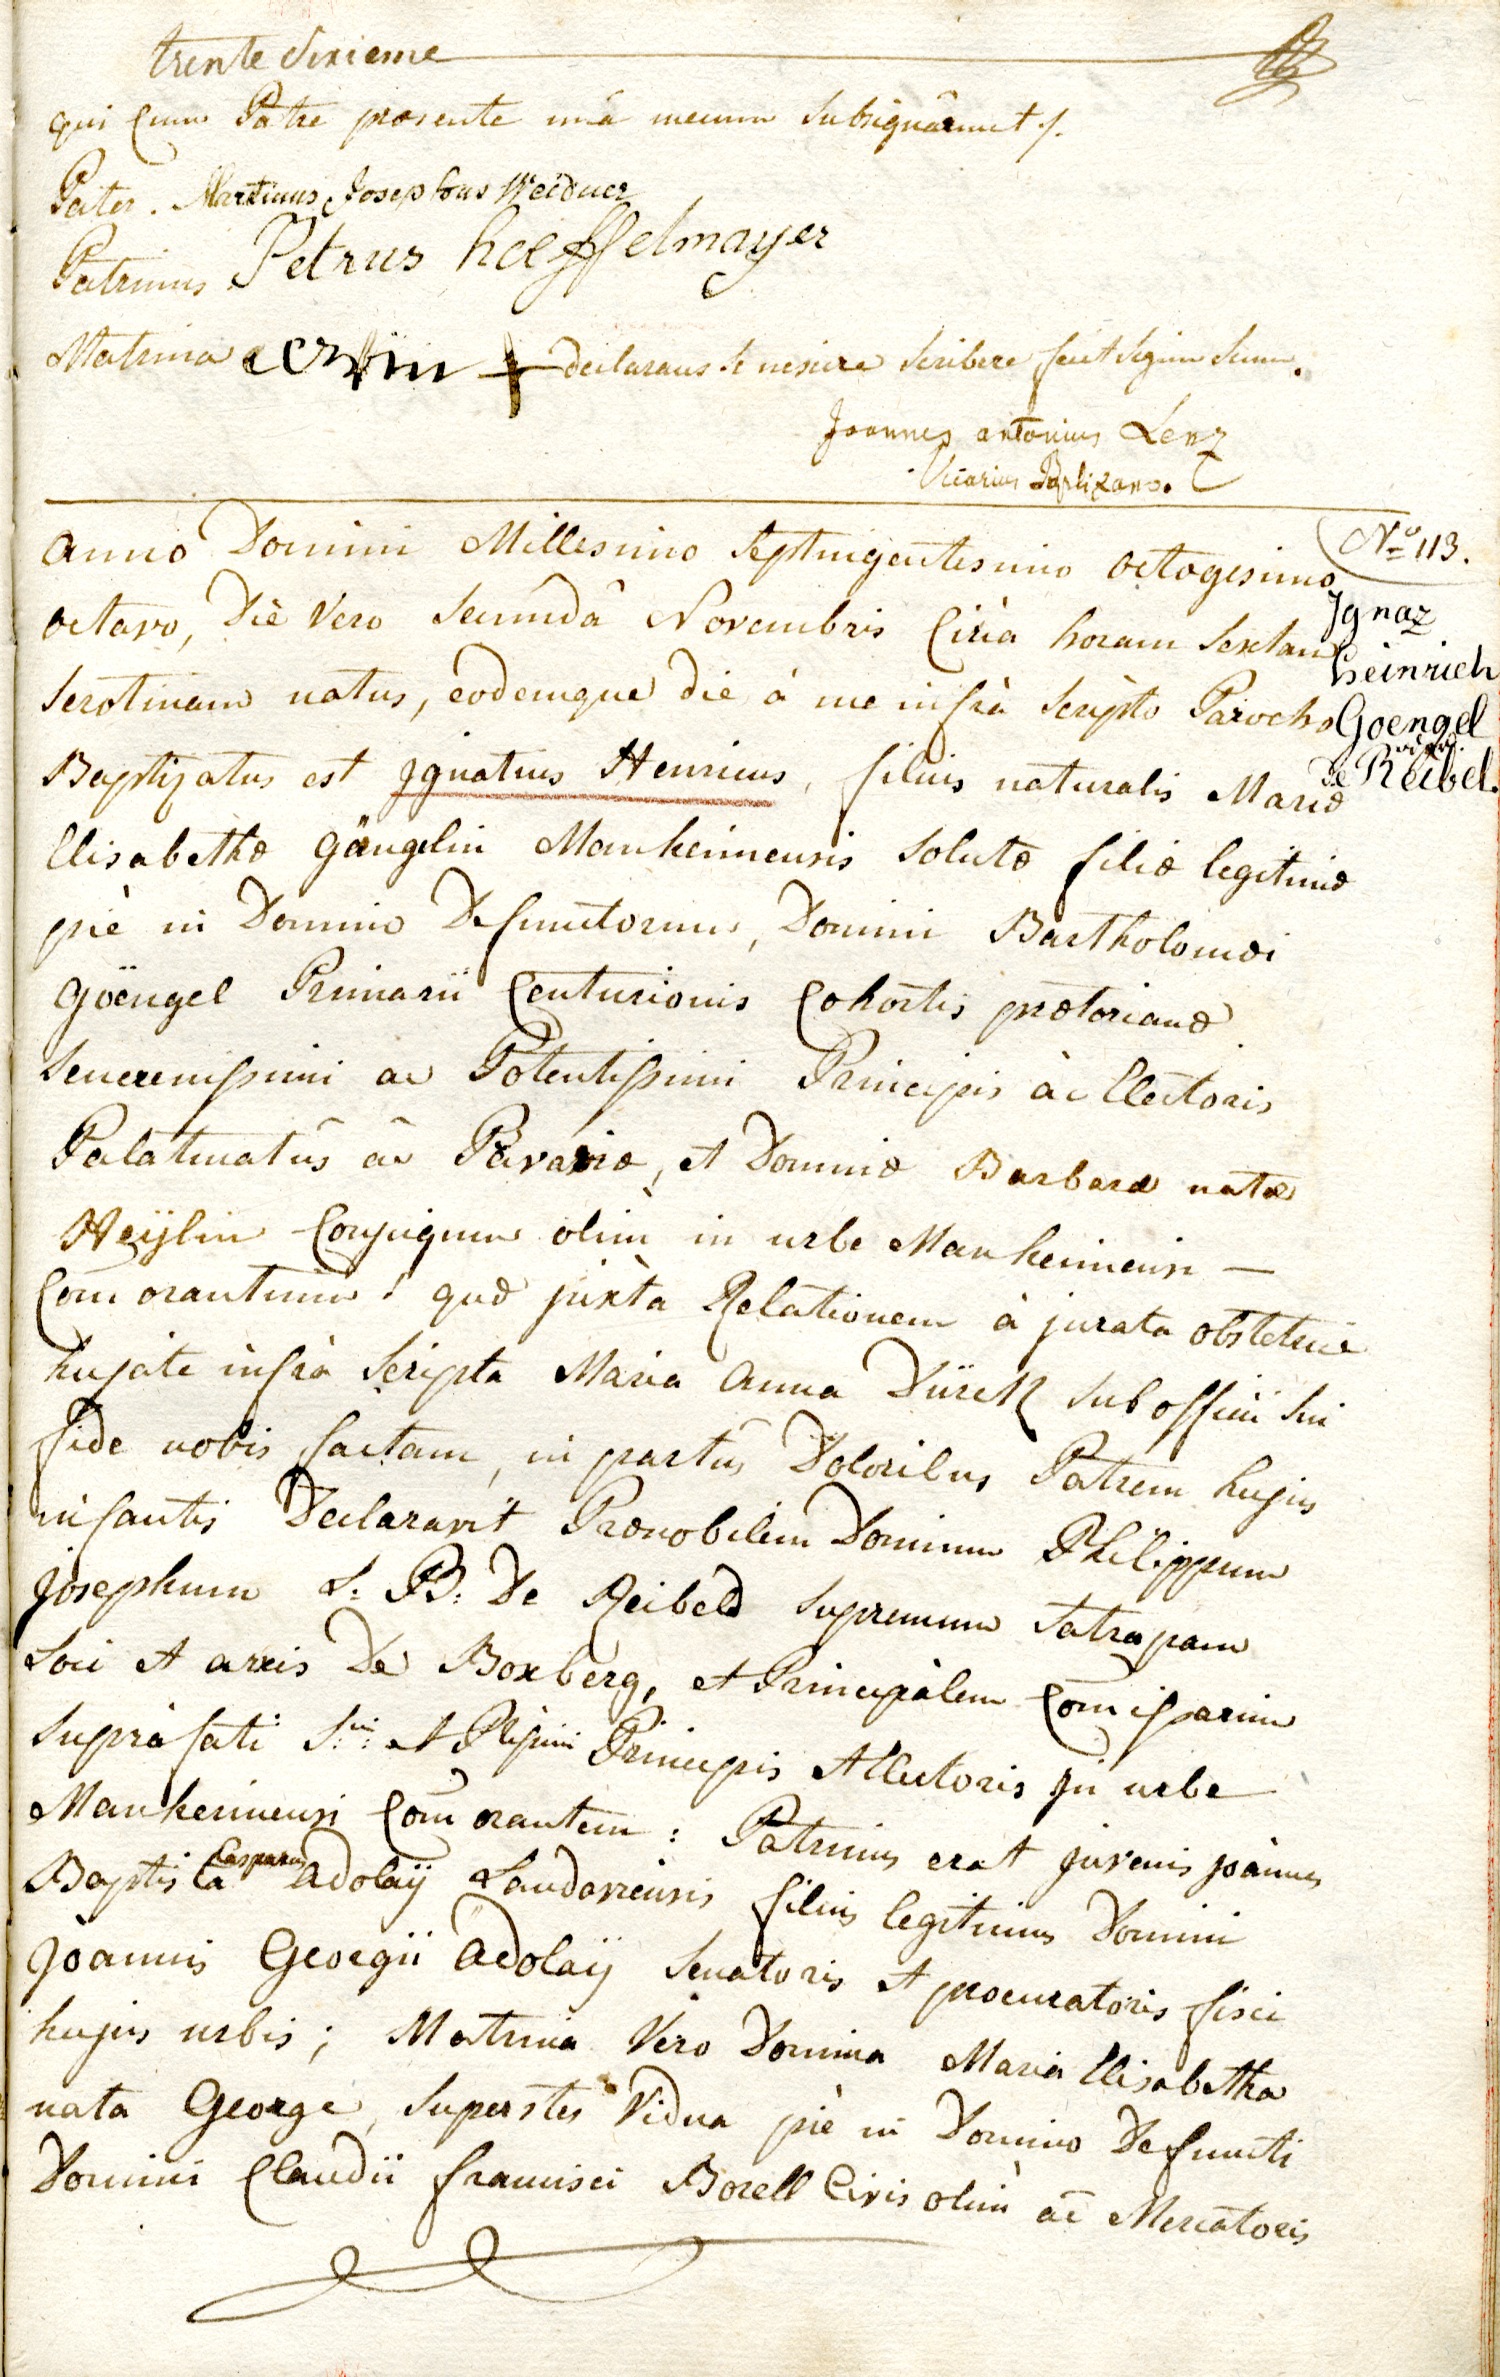 trente sixieme
qui cum Patre praesente unà mecum subsignârunt ./.
Pater. Martinus Josephus Weidner
Patrinus Petrus hoeffelmayer
Matrina + declarans se nescire scribere fecit signum suum.
Joannes antonius Lenz
Vicarius Baptizans.
Nº 113.
Anno Domini Millesimo septingentesimo octogesimo
octavo, Diè vero secundâ Novembris Circà horam sextam
serotinam natus, eodemque die à me infrà scripto Parocho
Baptizatus est Jgnatius Henricus, filius naturalis Mariæ
Elisabethæ Gängelin Manheimensis solutæ filiæ legitimæ
piè in Domino Defunctorum, Domini Bartholomæi
Göengel Primarii Centurionis Cohortis prætorianæ
Serenissimi ac Potentissimi Principis àc Electoris
Palatinatûs ac Bavariæ, et Dominæ Barbaræ natæ
Heÿlin Conjugum olim in urbe Manheimensi —
Com̄orantium: quæ juxtà Relationem à jurata obstetrice
hujate infrà scripta Maria Anna Dürck sub officii sui
fide nobis factam, in partûs Doloribus Patrem hujus
infantis Declaravit Prænobilem Dominum Philippum
Josephum L: B: De Reibeld supremum satrapam
Loci et arcis De Boxberg, et Principàlem Com̄issarium
supràfati S:mi et Pssimi Principis Electoris in urbe
Manheimensi Com̄orantem: Patrinus erat juvenis joànnes
Baptista Casparus Adolaÿ Landaviensis filius legitimus Domini
Joannis Georgii Adolaÿ Senatoris et procuratoris fisci
hujus urbis; Matrina Vero Domina Maria Elisabetha
nata George, superstes Vidua piè in Domino Defuncti
Domini Claudii francisci Borell Civis olim ac Mercatoris
Jgnaz
heinrich
Goengel
De Reibel.